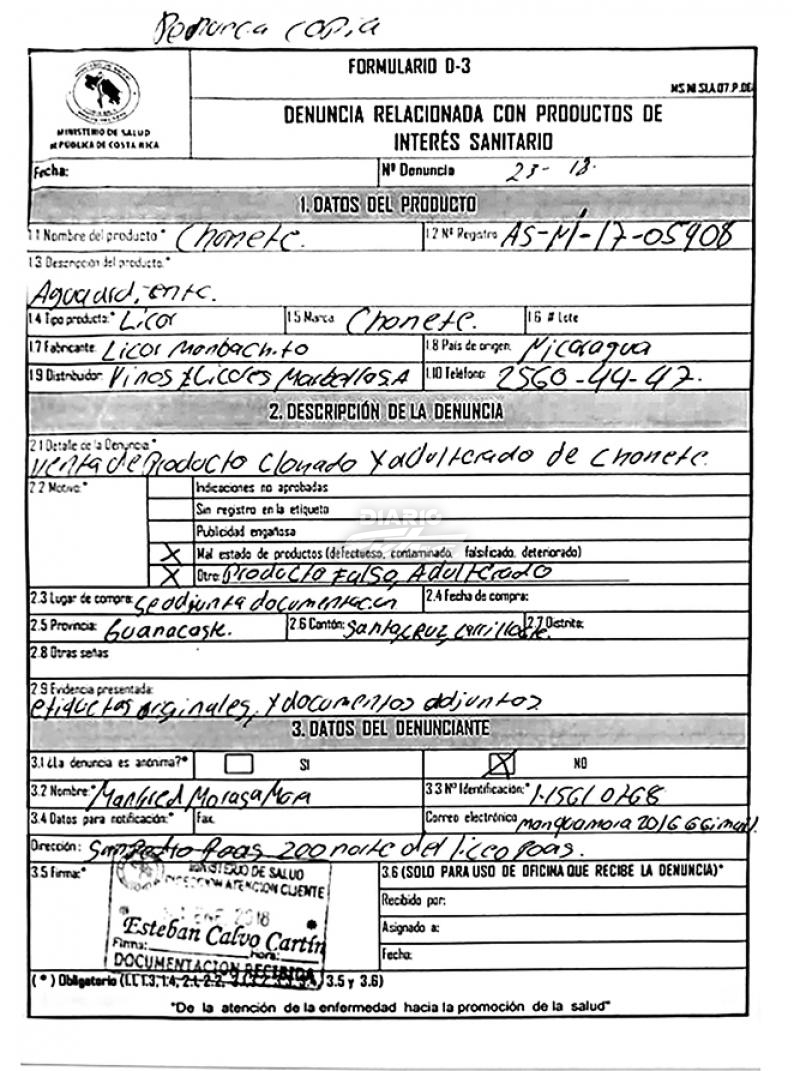 Denuncia copia
FORMULARIO D-3
MINISTERIO DE SALUD
REPÚBLICA DE COSTA RICA
DENUNCIA RELACIONADA CON PRODUCTOS DE
INTERÉS SANITARIO
Fecha: Nº Denuncia 23-18.
1. DATOS DEL PRODUCTO
1.1 Nombre del producto * Chonete. 1.2 Nº Registro AS-NI-17-05908
1.3 Descripción del producto.*
Aguardiente.
1.4 Tipo producto:* Licor 1.5 Marca Chonete. 1.6 # Lote
1.7 Fabricante Licor Monbachito 1.8 País de origen: Nicaragua
1.9 Distribuidor: Vinos y Licores Marbella S.A 1.10 Teléfono: 2560-44-47.
2. DESCRIPCIÓN DE LA DENUNCIA
2.1 Detalle de la Denuncia:*
Venta de Producto Clonado y adulterado de Chonete.
2.2 Motivo:* Indicaciones no aprobadas
Sin registro en la etiqueta
Publicidad engañosa
DIARIO
X Mal estado de productos (defectuoso, contaminado, falsificado, deteriorado)
X Otro: Producto Falso, Adulterado
2.3 Lugar de compra: se adjunta documentacion 2.4 Fecha de compra:
2.5 Provincia: Guanacaste. 2.6 Cantón: Santa Cruz, Carrillo 2.7 Distrito:
2.8 Otras señas
2.9 Evidencia presentada:
etiquetas originales, y documentos adjuntos
3. DATOS DEL DENUNCIANTE
3.1 ¿La denuncia es anónima?* SI X NO
3.2 Nombre:* Manfred Moraga Mora 3.3 Nº Identificación:* 1-1561 0768
3.4 Datos para notificación:* Fax: Correo electrónico
Dirección: San Pedro Poas 200 norte del liceo Poas.
3.5 Firma:* 3.6 (SOLO PARA USO DE OFICINA QUE RECIBE LA DENUNCIA)*
MINISTERIO DE SALUD
DIRECCION ATENCION CLIENTE
ENE 2018
Esteban Calvo Cartín
Firma: Hora:
DOCUMENTACION RECIBIDA
Recibido por:
Asignado a:
Fecha:
( * ) Obligatorio (1.1, 1.3, 1.4, 2.1, 2.2, 3.5 y 3.6)
"De la atención de la enfermedad hacia la promoción de la salud"